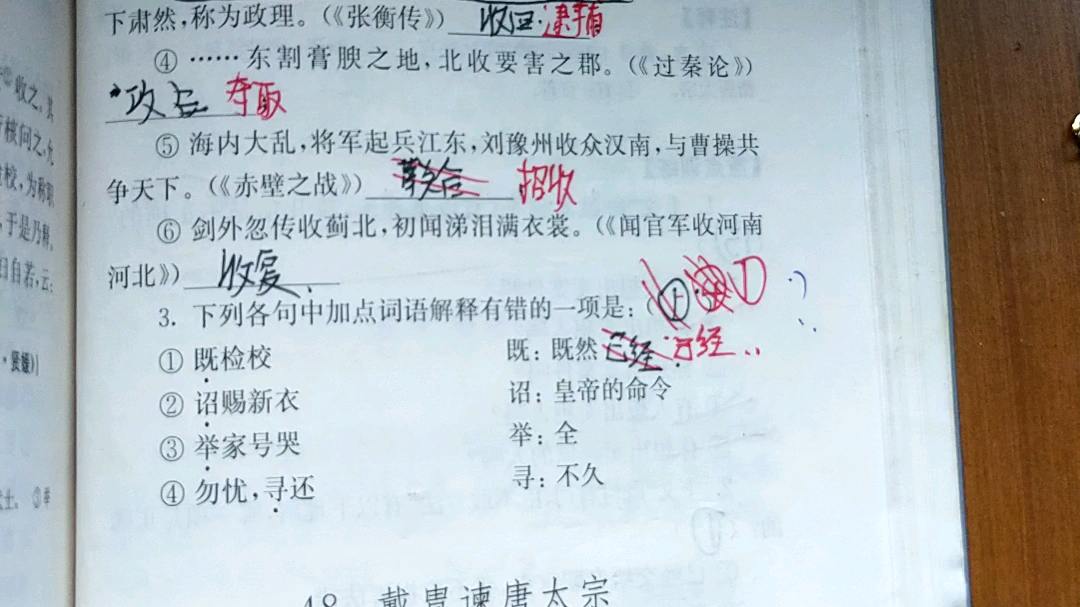 下肃然,称为政理。(《张衡传》) 收回. 逮捕
④ ……东割膏腴之地,北收要害之郡。(《过秦论》)
攻占 夺取
⑤ 海内大乱,将军起兵江东,刘豫州收众汉南,与曹操共
争天下。(《赤壁之战》) 联合 招收
⑥ 剑外忽传收蓟北,初闻涕泪满衣裳。(《闻官军收河南
河北》) 收复.
3. 下列各句中加点词语解释有错的一项是:( ①
① 既检校 既: 既然 已经
② 诏赐新衣 诏: 皇帝的命令
③ 举家号哭 举: 全
④ 勿忧,寻还 寻: 不久
48 戴胄谏唐太宗
收之,其
核问之,允
校,为称职
,于是乃释,
自若,云:
·贤媛》)
士。 ③举